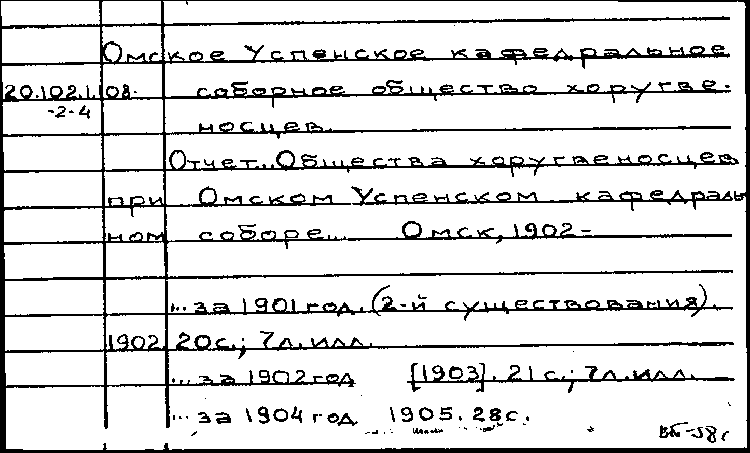 Омское Успенское кафедральное
20.102.1.108. саборное общество хоругве-
-2-4
носцев.
Отчет...Общества хоругвеносцев
при Омском Успенском кафедраль
ном соборе... Омск, 1902-
...за 1901 год. (2-й существования).
1902 20с.; 7л.илл.
...за 1902 год [1903]. 21 с.; 7л.илл.
...за 1904 год 1905. 28с.